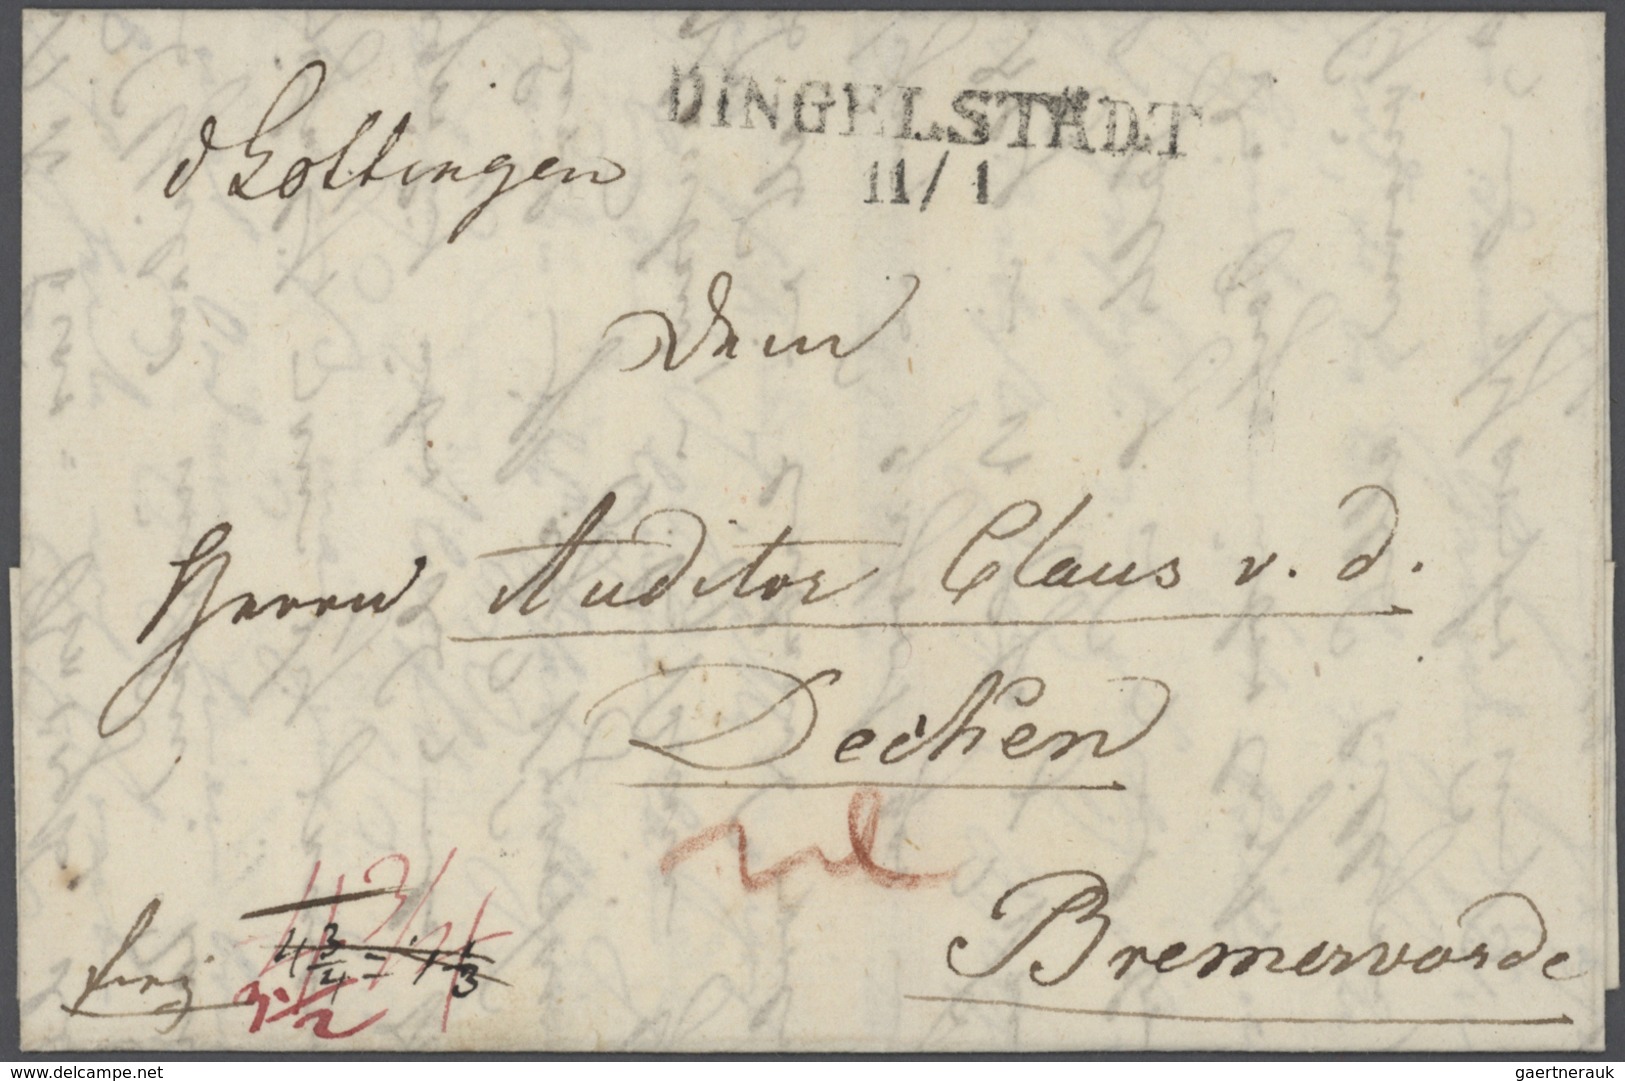 DINGELSTÄDT
11/1
d Gottingen
Dem
Herrn Auditor Claus v. d.
Decken
Bremervörde
4 3/4 = 1 1/3
delcampe.net
gaertnerauk